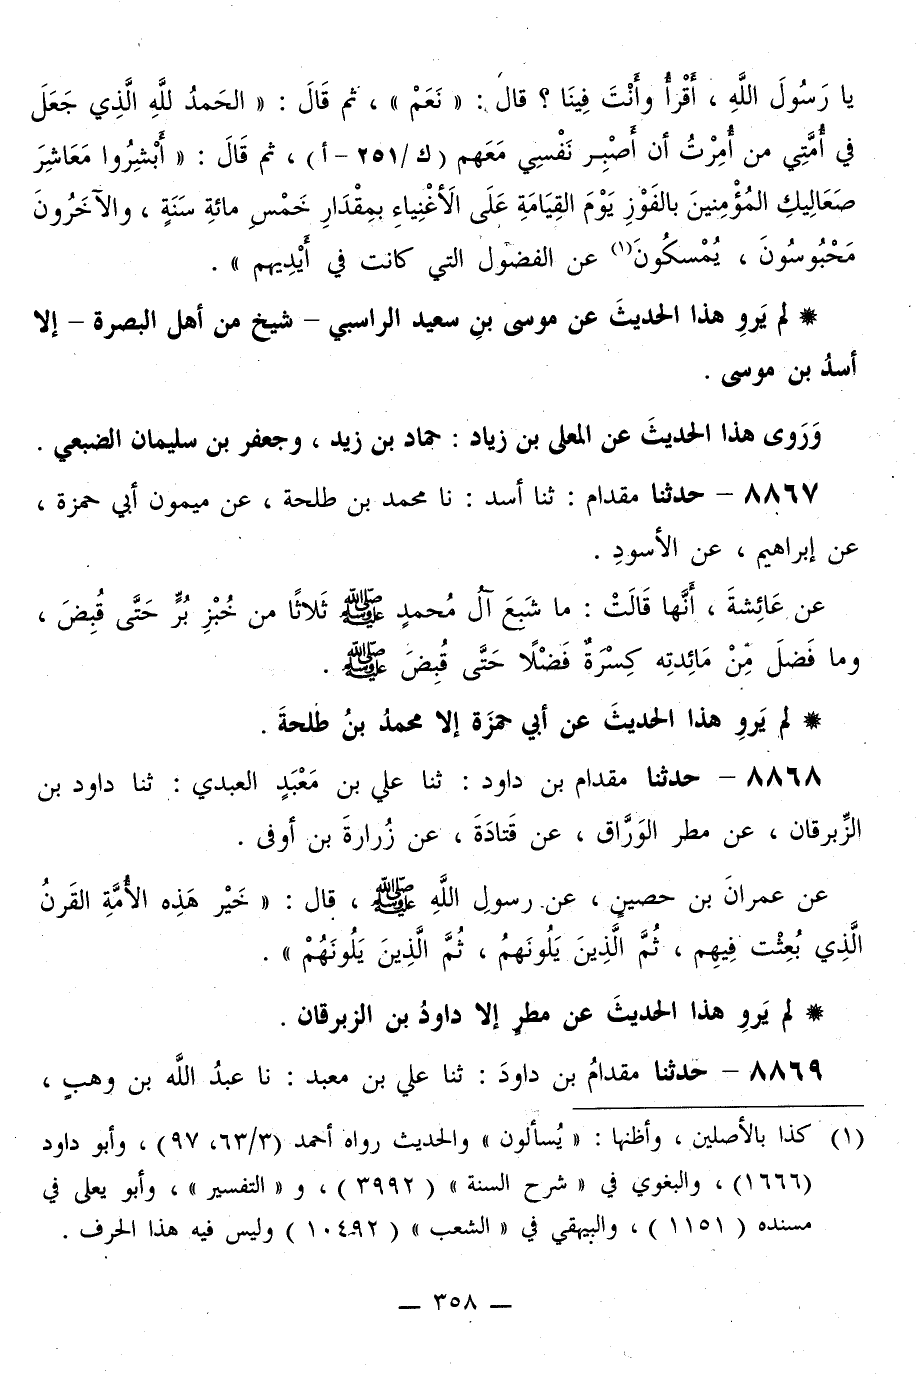 يا رَسُولَ اللَّهِ ، أَقْرأُ وأَنْتَ فِينَا ؟ قال : « نَعَمْ » ، ثم قَالَ : « الحَمدُ للَّهِ الَّذِي جَعَلَ
في أُمَّتِي من أُمِرْتُ أن أَصْبِر نَفْسِي مَعَهم ( ك /٢٥١ – أ ) ، ثم قَالَ : « أَبْشِرُوا مَعَاشِرَ
صَعَالِيكِ المُؤْمِنينَ بالفَوْزِ يَوْمَ القِيَامَةِ عَلَى الَأغْنِياءِ بمِقْدَارِ خَمْسِ مائةِ سَنَةٍ ، والآخَرُونَ
مَحْبُوسُونَ ، يُمْسكُونَ(١) عن الفضُول التي كانت في أَيْدِيهم » .
* لم يَروِ هذا الحديثَ عن موسى بنِ سعيد الراسبي – شيخ من أهل البصرة – إلا
أسدُ بن موسى .
وَرَوى هذا الحديثَ عن المعلى بن زياد : حماد بن زيد ، وجعفر بن سليمان الضبعي .
٨٨٦٧ – حدثنا مقدام : ثنا أسد : نا محمد بن طلحة ، عن ميمون أبي حمزة ،
عن إبراهيم ، عن الأسودِ .
عن عَائِشةَ ، أَنَّها قَالَتْ : ما شَبَعَ آلُ مُحمدٍ ﷺ ثَلاثًا من خُبْزِ بُرٍّ حَتَّى قُبِضَ ،
وما فَضلَ مِنْ مَائِدتِه كِسْرَةٌ فَضْلًا حَتَّى قُبِضَ ﷺ .
* لم يَروِ هذا الحديثَ عن أبي حمزَة إلا محمدُ بنُ طلحةَ .
٨٨٦٨ – حدثنا مقدام بن داود : ثنا علي بن مَعْبَدٍ العبدي : ثنا داود بن
الزِّبرقان ، عن مطر الوَرَّاق ، عن قَتادَةَ ، عن زُرارةَ بن أوفى .
عن عمرانَ بن حصينٍ ، عن رسولِ اللَّهِ ﷺ ، قال : « خَيْر هَذِه الأُمَّةِ القَرنُ
الَّذِي بُعِثْت فِيهِم ، ثُمَّ الَّذِينَ يَلُونَهمُ ، ثُمَّ الَّذِينَ يَلُونَهُمْ » .
* لم يَروِ هذا الحديثَ عن مطرٍ إلا داودُ بن الزبرقان .
٨٨٦٩ – حدثنا مقدامُ بن داودَ : ثنا علي بن معبد : نا عبدُ الله بن وهبٍ ،
(١) كذا بالأصلين ، وأظنها : « يُسألون » والحديث رواه أحمد (٦٣/٣، ٩٧) ، وأبو داود
(١٦٦٦) ، والبغوي في « شرح السنة » ( ٣٩٩٢ ) ، و « التفسير » ، وأبو يعلى في
مسنده ( ١١٥١ ) ، والبيهقي في « الشعب » ( ١٠٤٩٢ ) وليس فيه هذا الحرف .
— ٣٥٨ —